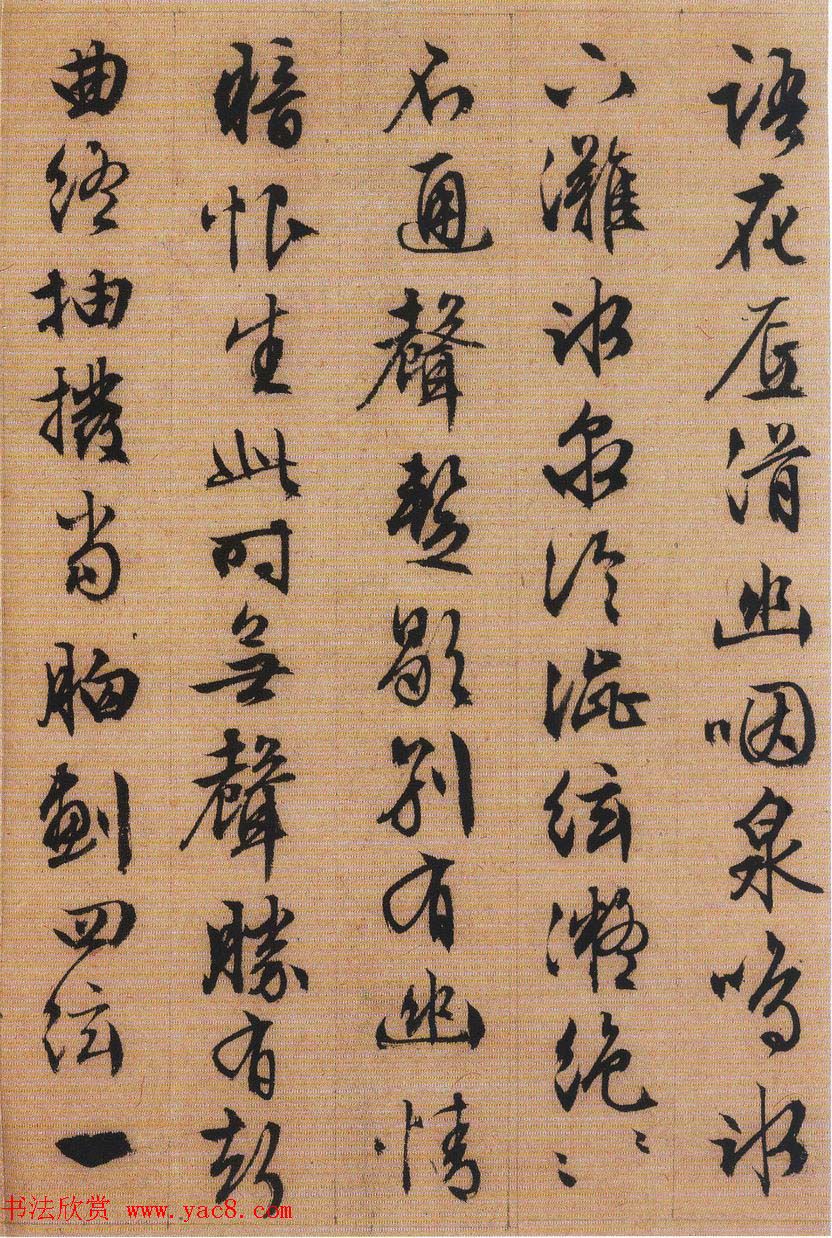 語花底滑幽咽泉鳴冰
下灘冰泉冷澁絃凝絶〻〻
不通聲暫歇別有幽情
暗恨生此時無聲勝有聲
曲終抽撥當胸劃四絃一
书法欣赏 www.yac8.com